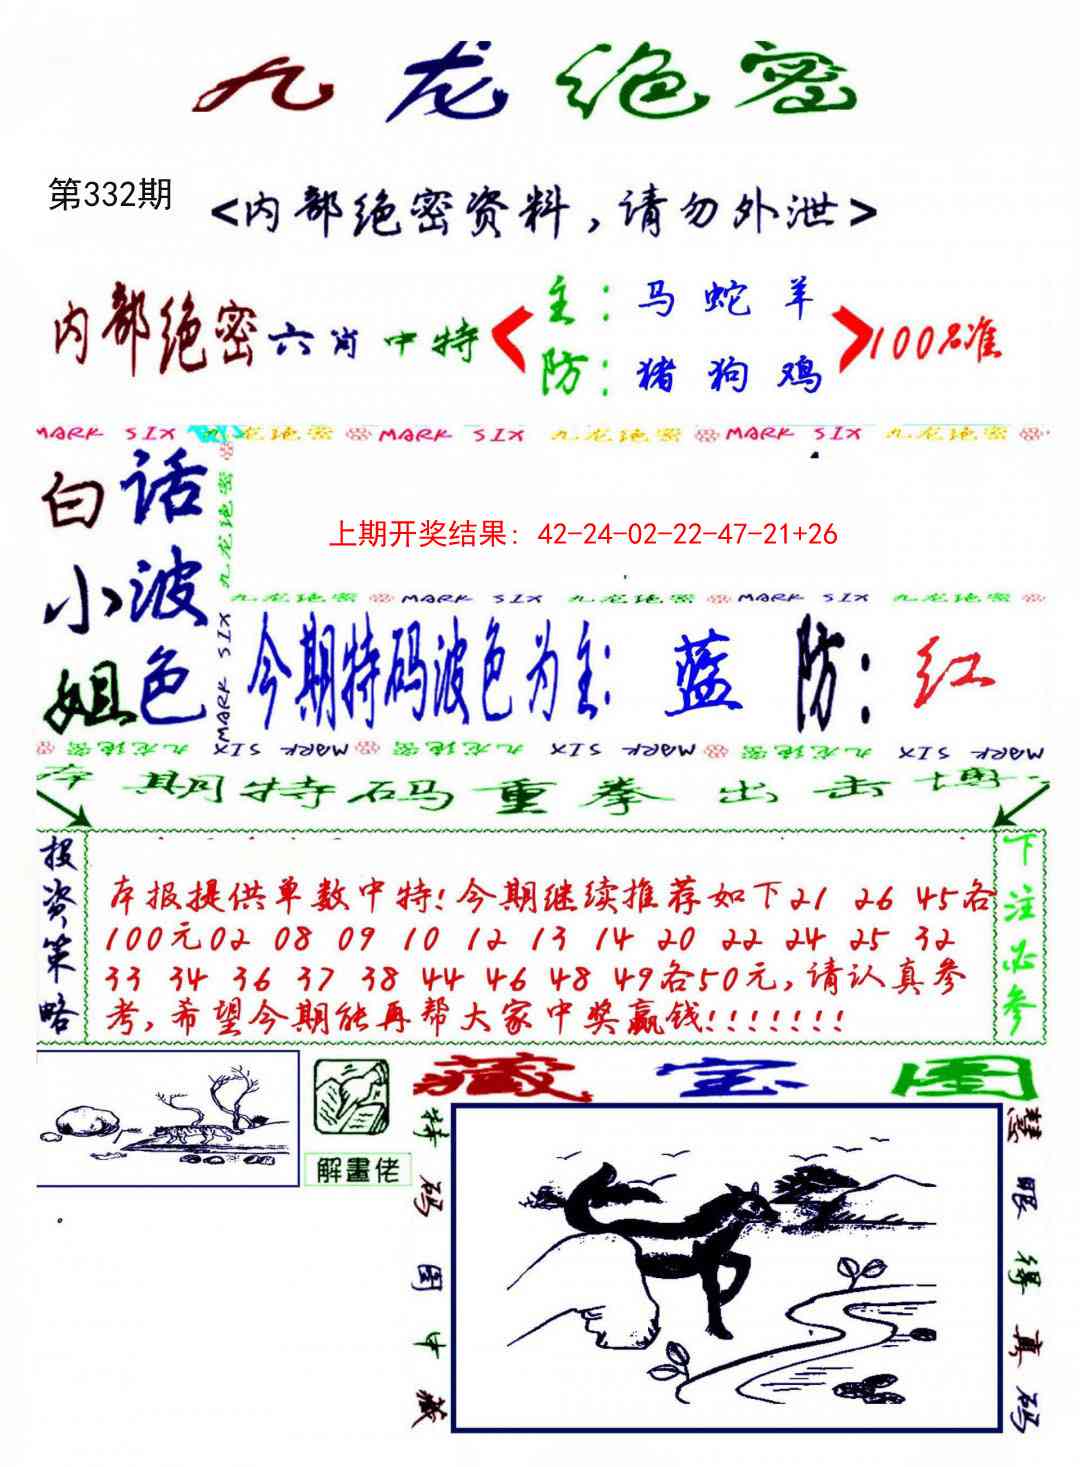 九龙绝密
第332期
<内部绝密资料,请勿外泄>
内部绝密六肖中特
主: 马 蛇 羊
防: 猪 狗 鸡
100%准
MARK SIX 九龙绝密 MARK SIX 九龙绝密 MARK SIX 九龙绝密
白小姐
话波色
九龙绝密
MARK SIX
上期开奖结果: 42-24-02-22-47-21+26
九龙绝密 MARK SIX 九龙绝密 MARK SIX 九龙绝密
今期特码波色为主: 蓝 防: 红
九龙绝密 MARK SIX 九龙绝密 MARK SIX 九龙绝密 MARK SIX
本期特码重拳出击博
投资策略
本报提供单数中特!今期继续推荐如下21 26 45各
100元02 08 09 10 12 13 14 20 22 24 25 32
33 34 36 37 38 44 46 48 49各50元,请认真参
考,希望今期能再帮大家中奖赢钱!!!!!!!
下注必参
解畫佬
藏宝图
特码图中藏
慧眼得真码